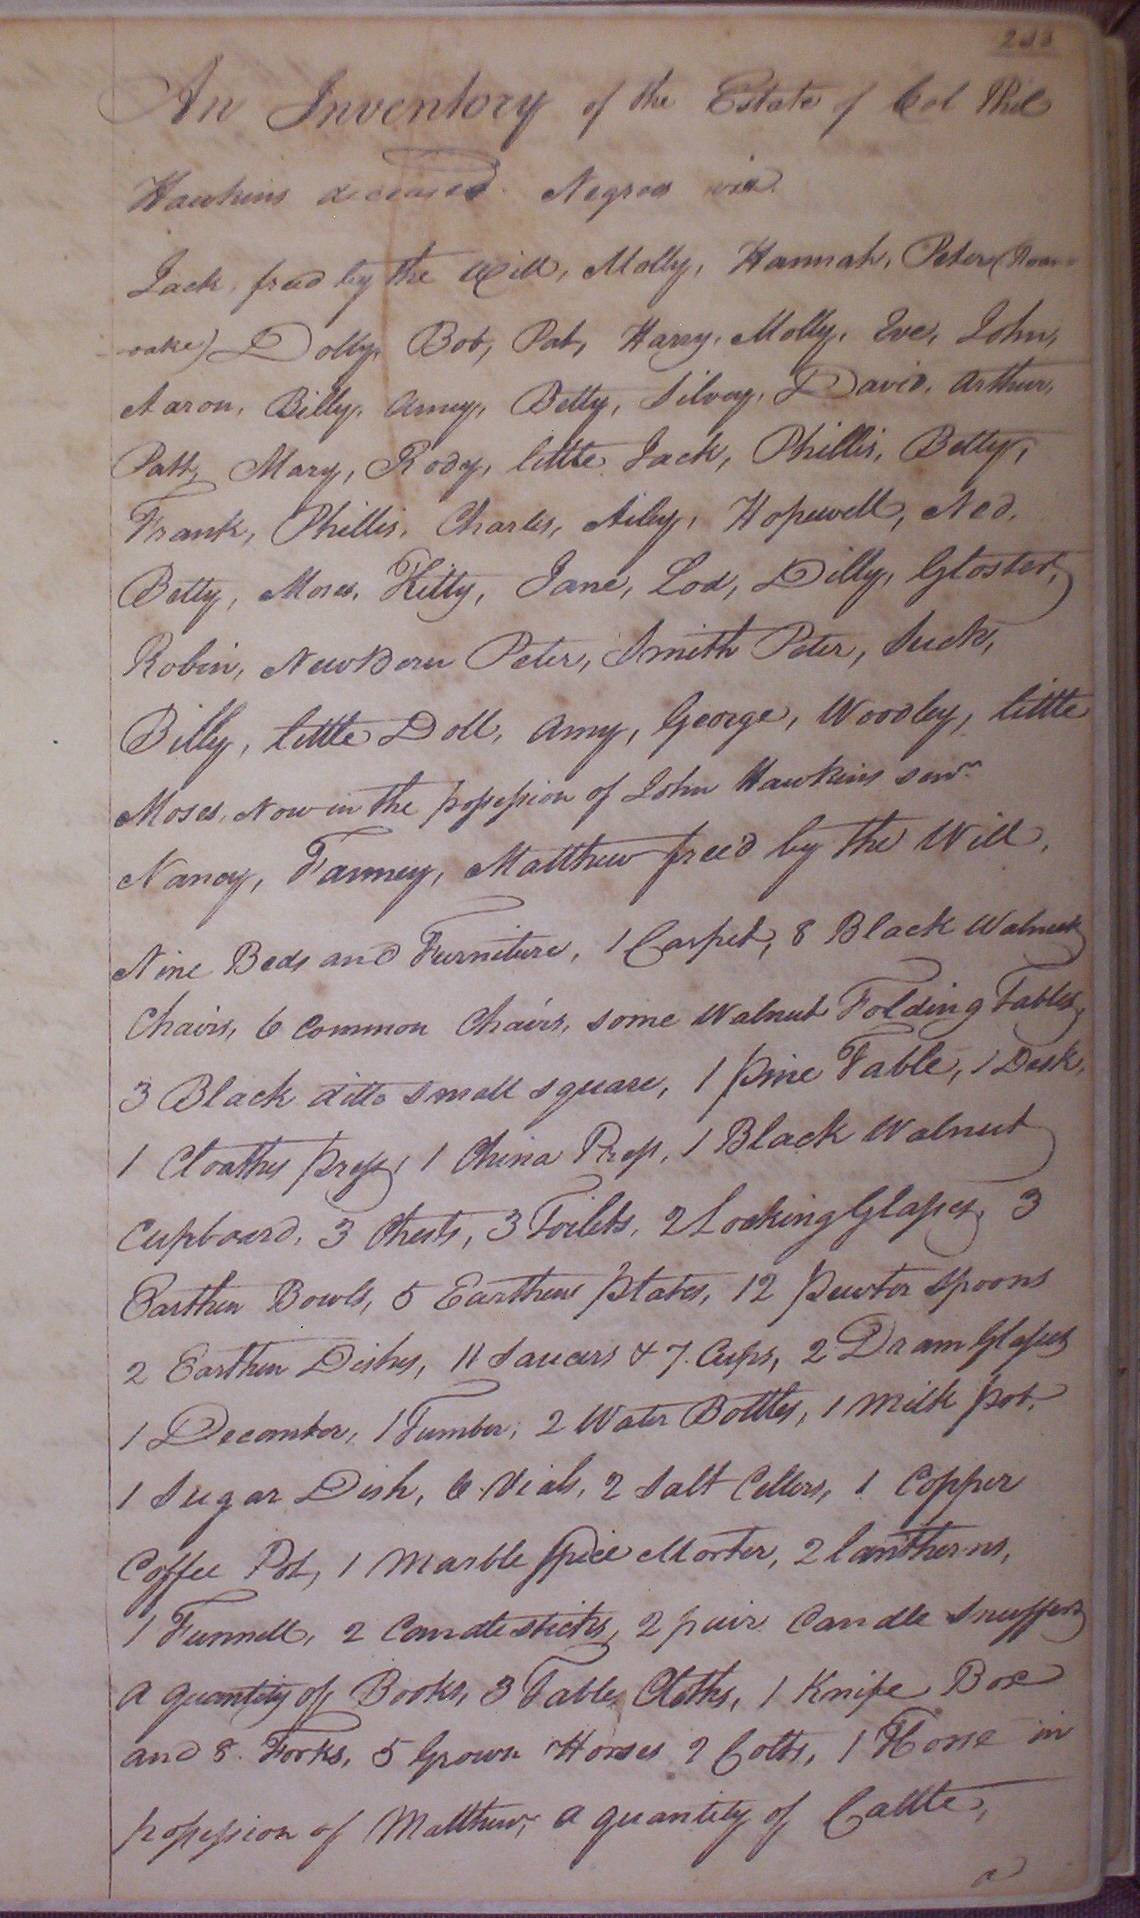 An Inventory of the Estate of Col Phil
Hawkins deceased. Negroes viz.
Jack, freed by the Will, Molly, Hannah, Peter (Roan-
-oake) Dolly, Bob, Pat, Harry, Molly, Eve, John,
Aaron, Billy, Amey, Betty, Silvey, David, Arthur,
Patt, Mary, Rody, little Jack, Phillis, Betty,
Frank, Phillis, Charles, Ailey, Hopewell, Ned,
Betty, Moses, Kitty, Jane, Lod, Dilly, Gloster,
Robin, NewBern Peter, Smith Peter, Suck,
Billy, little Doll, Amy, George, Woodley, little
Moses, Now in the possession of John Hawkins senr.
Nancy, Fanney, Matthew free'd by the Will,
Nine Beds and Furniture, 1 Carpet, 8 Black Walnut
Chairs, 6 common Chairs, some Walnut Folding Tables,
3 Black ditto small square, 1 pine Table, 1 Desk,
1 Cloathes press, 1 China Press, 1 Black Walnut
Cupboard, 3 Chests, 3 Toilets, 2 Looking Glasses, 3
Earthen Bowls, 5 Earthen plates, 12 pewter spoons
2 Earthen Dishes, 11 Saucers & 7 Cups, 2 Dram Glasses
1 Decanter, 1 Tumber, 2 Water Bottles, 1 milk pot,
1 Sugar Dish, 6 Vials, 2 Salt Cellers, 1 Copper
Coffee Pot, 1 Marble Spice Morter, 2 lantherns,
1 Funnell, 2 Candlesticks, 2 pair Candle Snuffers
a quantity of Books, 3 Table Cloths, 1 Knife Box
and 8 Forks, 5 Grown Horses 2 Colts, 1 Horse in
possession of Matthew, a quantity of Cattle,
a